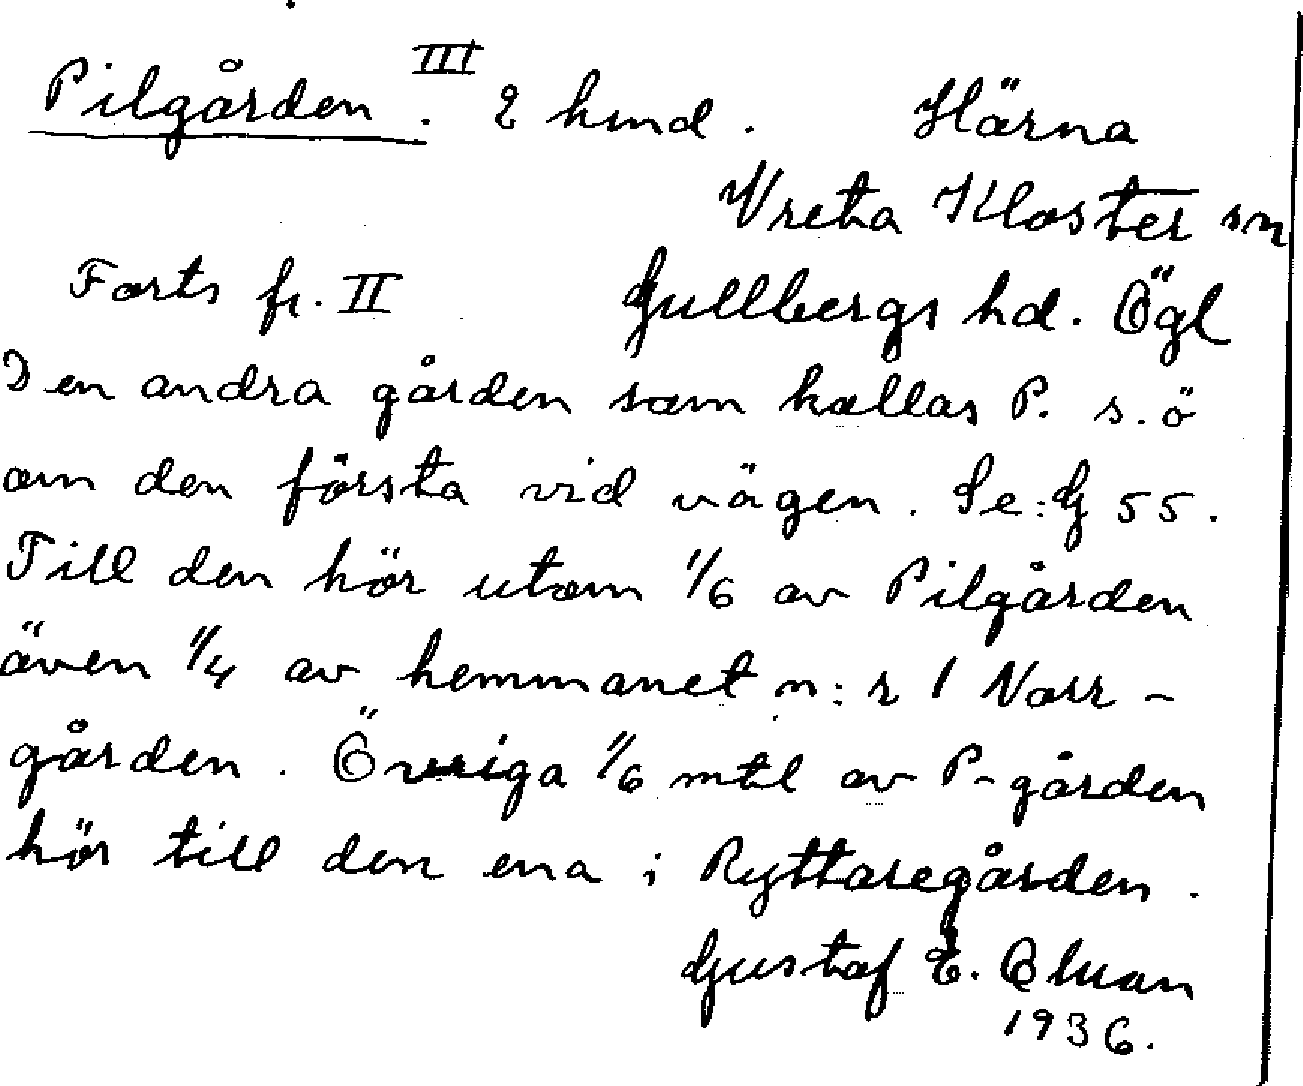 Pilgården III. 2 hmd. Härna
Vreta Kloster sn
Forts fr. II Gullbergs hd. Ögl
Den andra gården som kallas P. s.ö
om den första vid vägen. Se: G 55.
Till den hör utom 1/6 av Pilgården
även 1/4 av hemmanet n:r 1 Norr-
gården. Övriga 1/6 mtl av P-gården
hör till den ena i Ryttaregården.
Gustaf E.
1936.